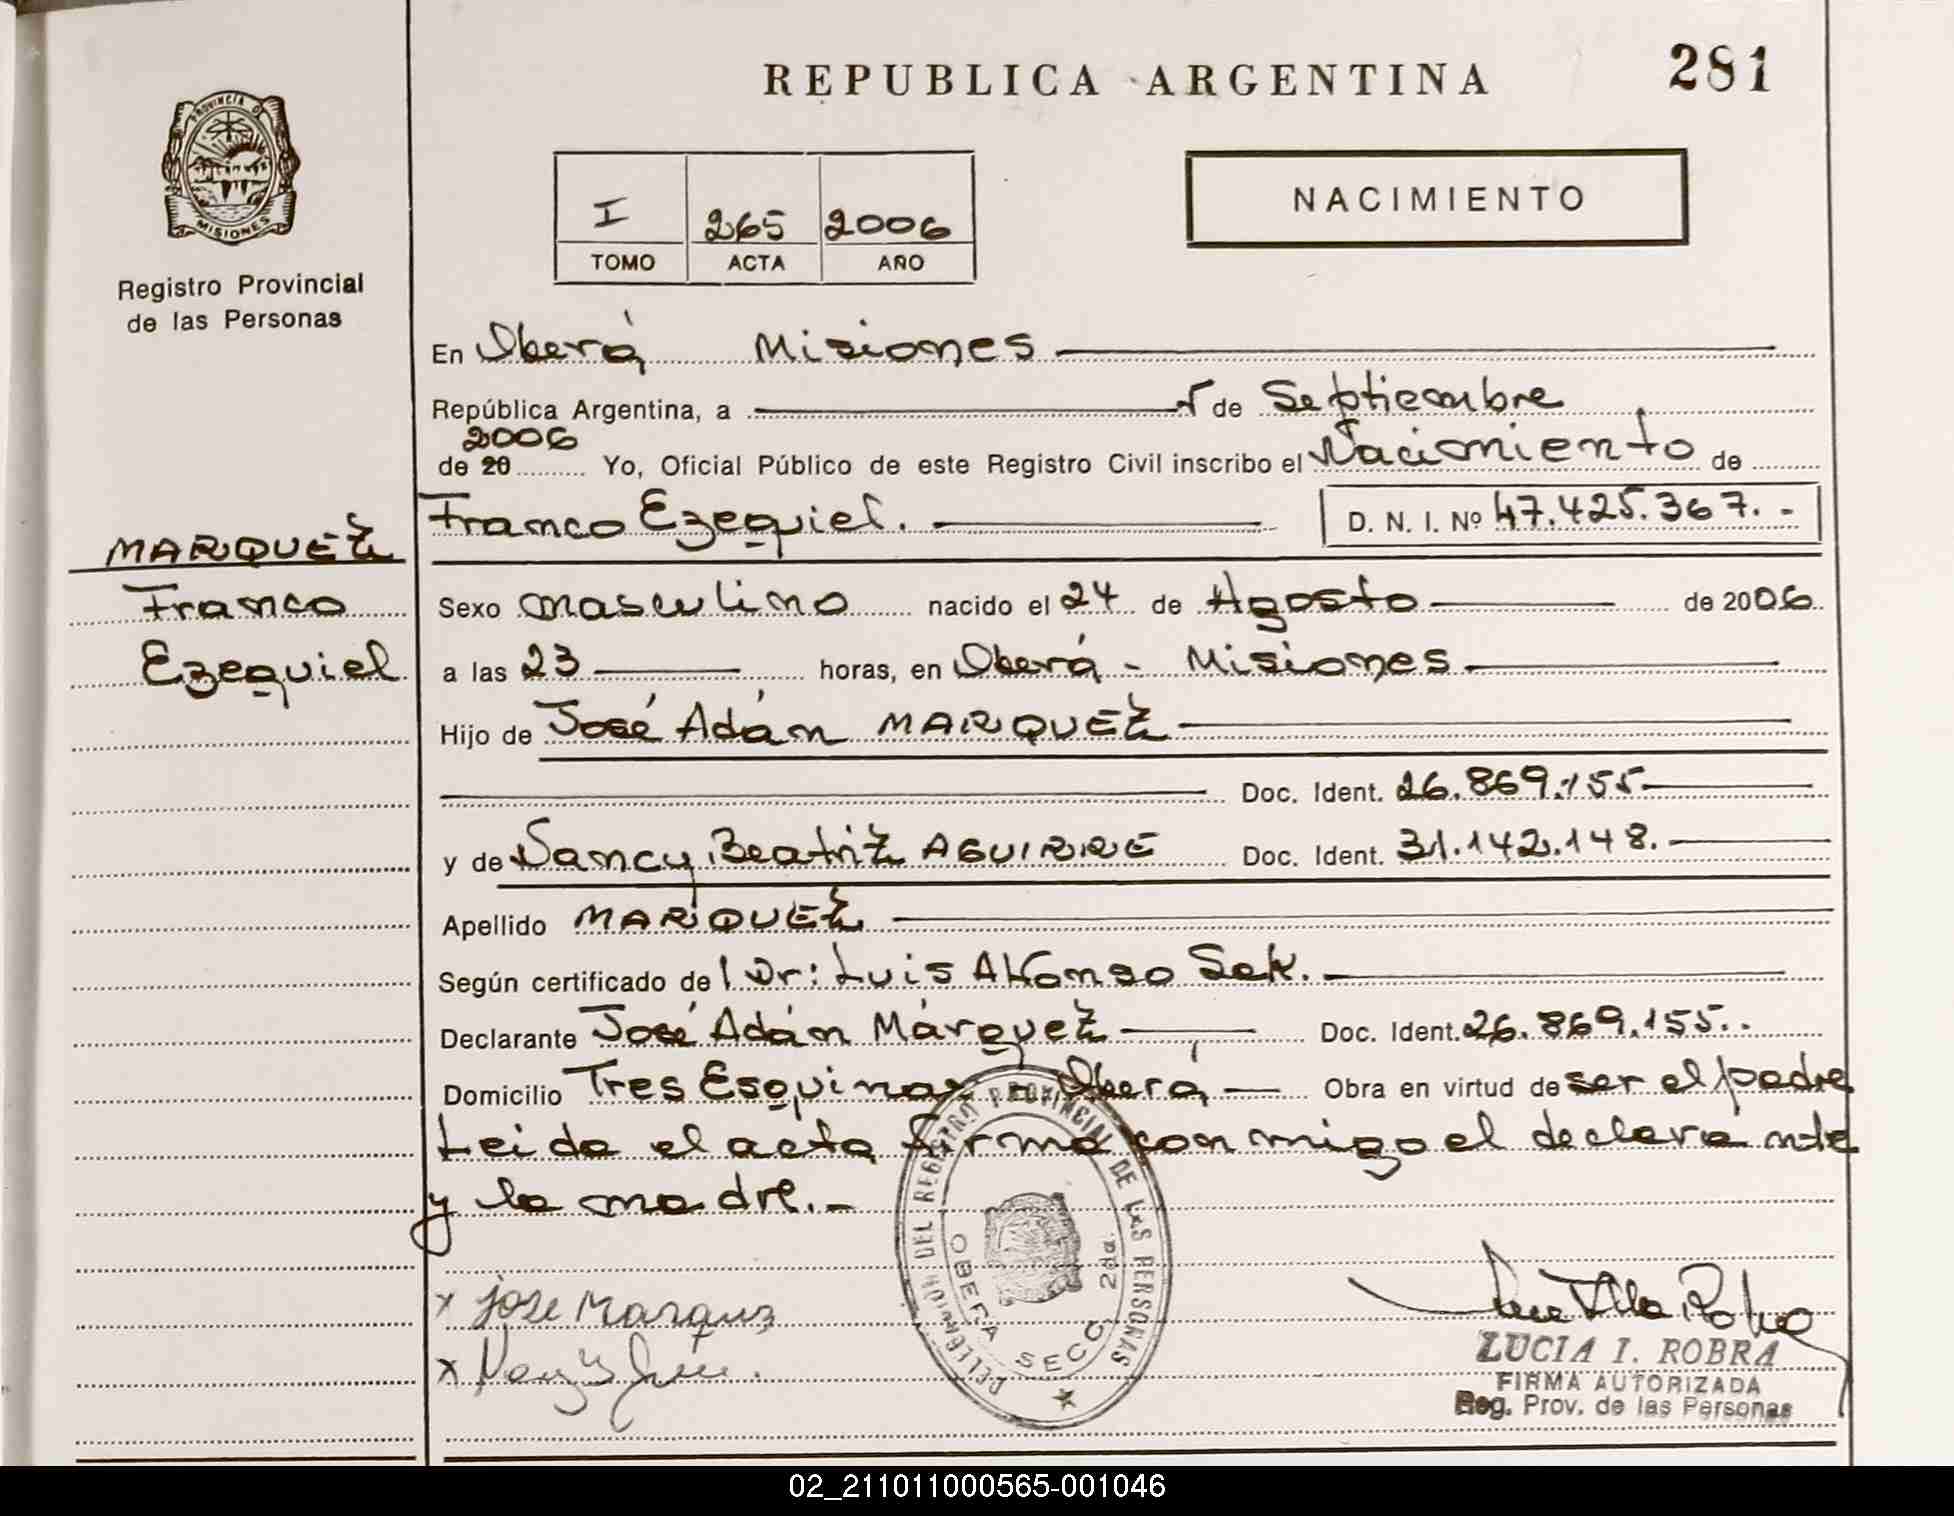 REPUBLICA ARGENTINA
281
PROVINCIA DE
MISIONES
Registro Provincial
de las Personas
I 265 2006
TOMO ACTA AÑO
NACIMIENTO
En Oberá Misiones
República Argentina, a 5 de Septiembre
2006
de 20 Yo, Oficial Público de este Registro Civil inscribo el Nacimiento de
Franco Ezequiel. D. N. I. Nº 47.425.367.-
MARQUEZ
Franco
Ezequiel
Sexo masculino nacido el 24 de Agosto de 2006
a las 23 horas, en Oberá - Misiones
Hijo de José Adán MARQUEZ
Doc. Ident. 26.869.155
y de Nancy Beatriz AGUIRRE Doc. Ident. 31.142.148.
Apellido MARQUEZ
Según certificado de l Dr: Luis Alfonso Sek.
Declarante José Adán Márquez Doc. Ident. 26.869.155..
Domicilio Tres Esquinas - Oberá Obra en virtud de ser el padre
Leida el acta firma con migo el declarante
y la madre.-
x jose Marquz
x
DEL REGISTRO PROVINCIAL DE LAS PERSONAS
OBERA SECC 2da.
LUCIA I. ROBRA
FIRMA AUTORIZADA
Reg. Prov. de las Personas
02_211011000565-001046